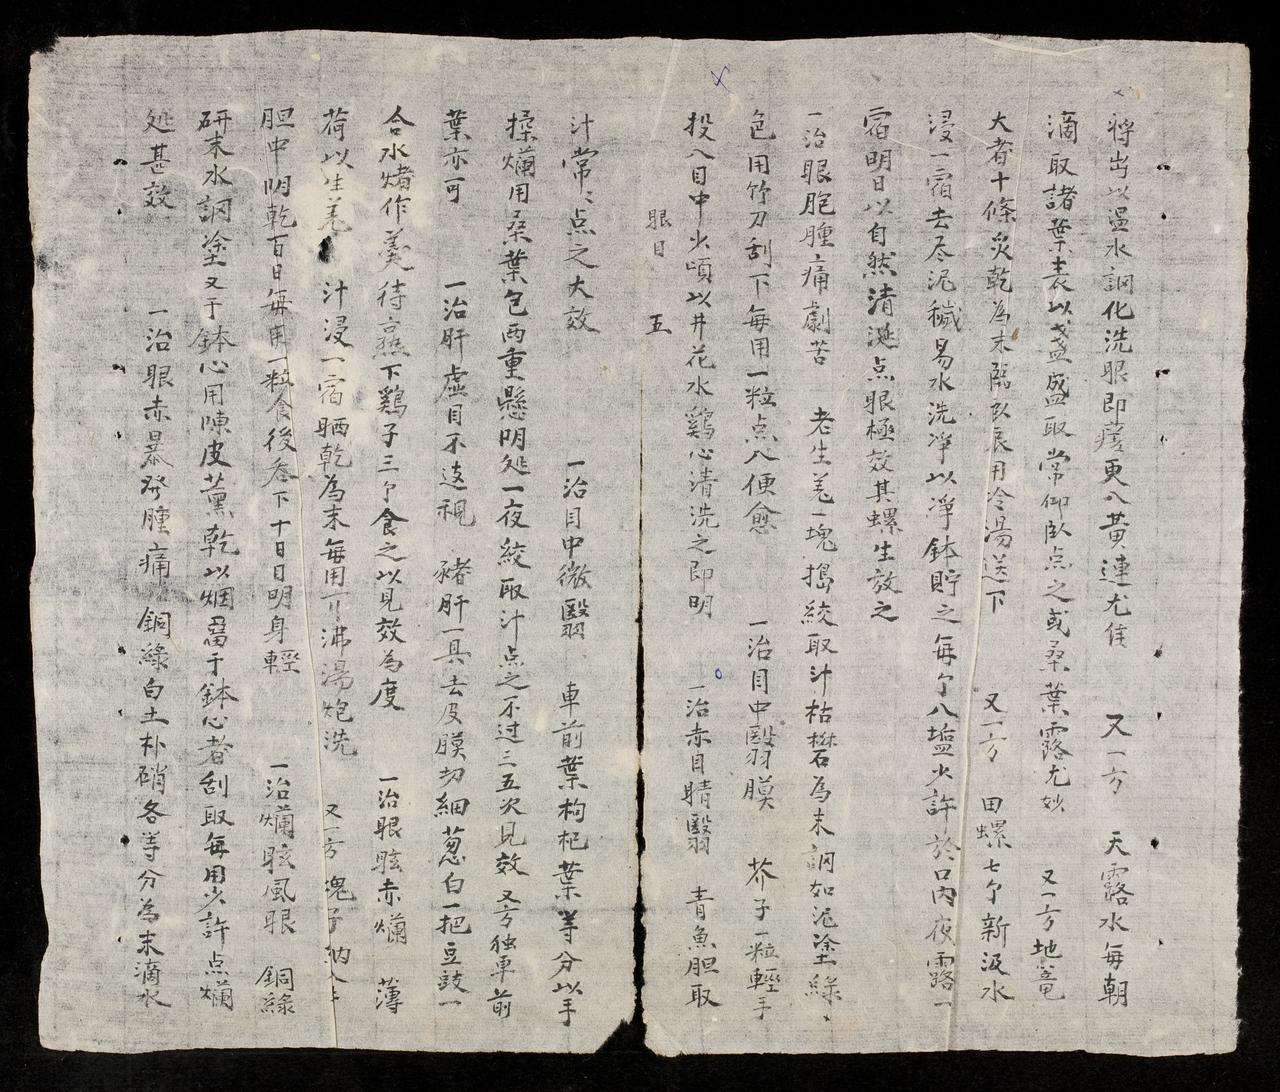 將出以溫水調化洗眼即瘥更入黃連尤佳　又一方　天露水每朝
滴取諸葉表以盞盛取常仰臥点之或桑葉露尤妙　又一方地竜
大者十條炙乾為末臨臥辰用冷湯送下　又一方　田螺七个新汲水
浸一宿去尽泥穢易水洗凈以凈鉢貯之每个入塩少許於口內夜露一
宿明日以自然清涎点眼極效其螺生放之
一治眼胞腫痛劇苦　老生羌一塊搗絞取汁枯礬為末調如泥塗綠
色用竹刀刮下每用一粒点入便愈　一治目中翳膜　芥子一粒輕手
投入目中少頃以井花水鷄心清洗之即明　一治赤目睛翳　青魚胆取
眼目　五
汁常〻点之大效　一治目中微翳　車前葉枸杞葉等分以手
揉爛用桑葉包两重懸阴処一夜絞取汁点之不过三五次見效　又方独車前
葉亦可　一治肝虛目不远視　豬肝一具去皮膜切細葱白一把豆豉一
合水煮作羹待熟下鷄子三个食之以見效為度　一治眼眩赤爛　薄
荷以生羌汁浸一宿晒乾為末每用一𠆤沸湯炮洗　又一方槐子納入牛
胆中阴乾百日每用一粒食後吞下十日目明身輕　一治爛眩風眼　銅綠
研末水調塗又于鉢心用陳皮薰乾以烟畱于鉢心者刮取每用少許点爛
処甚效　一治眼赤暴発腫痛　銅綠白土朴硝各等分為末滴水